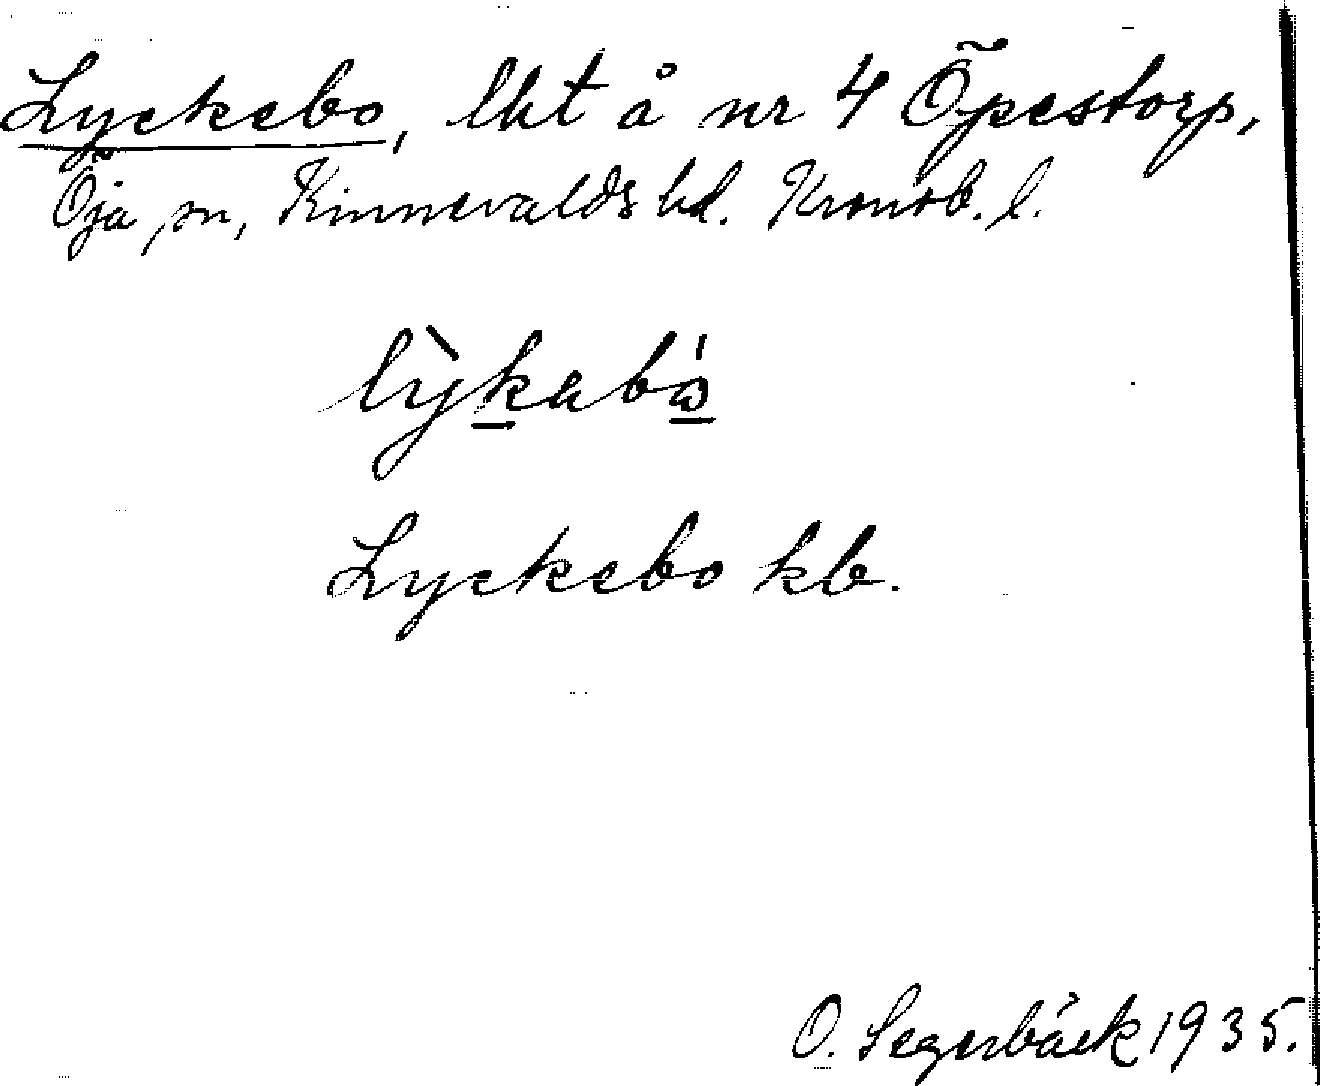 Lyckebo, lht å nr 4 Öpestorp,
Öja sn, Kinnevalds hd. Kronob. l.
lỳkabó
Lyckebo kb.
O. Segerbäck 1935.